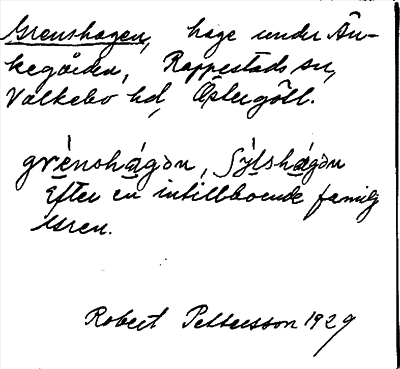 Grenshagen, hage under Än-
kegården, Rappestads sn,
Valkebo hd, Östergötl.
grènshágən, Sỳlshágən
Efter en intillboende familj
Gren.
Robert Pettersson 1929